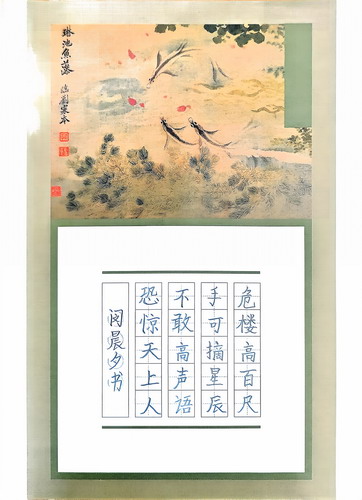 琳池魚藻
临刘寀本
危楼高百尺
手可摘星辰
不敢高声语
恐惊天上人
闵晨夕书